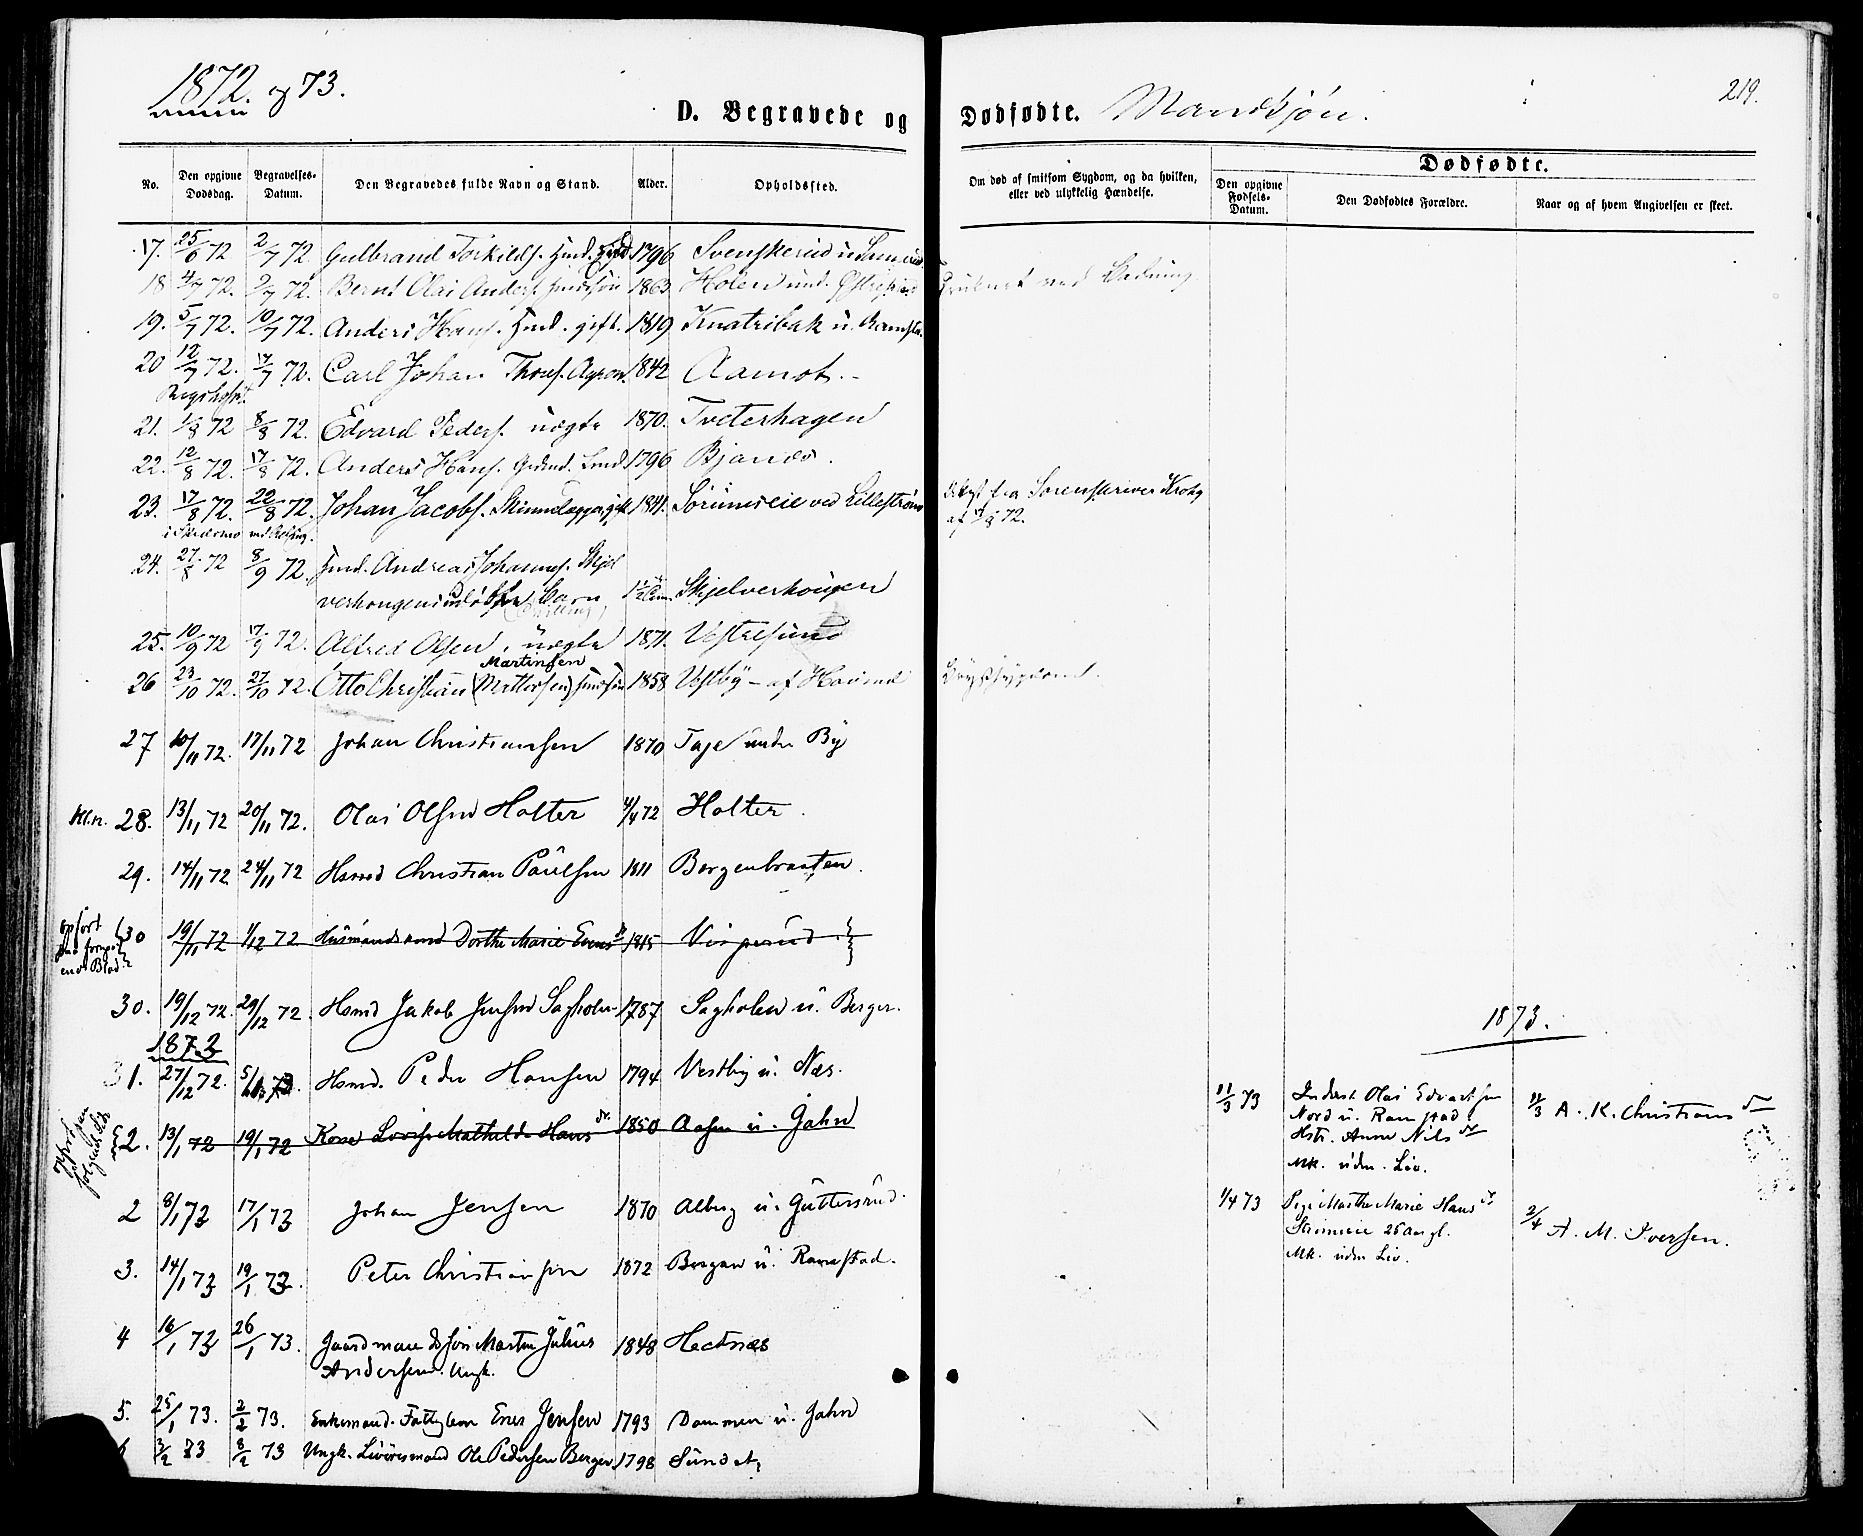 1872 og 73.
D. Begravede og Dødfødte. Mandkjøn.
219.
No.
Den opgivne Dødsdag.
Begravelses-Datum.
Den Begravedes fulde Navn og Stand.
Alder.
Opholdssted.
Om død af smitsom Sygdom, og da hvilken, eller ved ulykkelig Hændelse.
Dødfødte.
Den opgivne Fødsels-Datum.
Den Dødfødtes Forældre.
Naar og af hvem Angivelsen er skeet.
17. 25/6 72 2/7 72 Gulbrand Torkilds. 1796 Svenskerud u.
18 4/7 72. 9/7 72. Bernt Olai Anders. 1863 Holen und. ved Badning.
19. 5/7 72. 10/7 72. Anders Hans. Hmd. gift. 1819 Knatribak u.
20 12/7 72. 17/7 72. Carl Johan Thors. Agron. 1842 Aamot. -
Rigshosp.
21. 1/8 72 8/8 72. Edvard Peders. uægte 1870. Tveterhagen
22. 12/8 72. 17/8 72. Anders Hans. Grdmd. 1796 Bjanes.
23. 17/8 72. 22/8 72. Johan Jacobs. gift 1841. Sørumseie ved Lillestrøm fra Sorenskriver Krohg
af 17/8 72.
24. 27/8 72 8/9 72. Hmd. Andreas Johannes. Skjel
verhougens udøbte Barn 1/2 Skjelverhougen
(Tvilling)
25. 10/9 72 17/9 72. Alfred Olsen, uægte 1871. Vestresund
Martinsen
26 23/10 72. 27/10 72. Otto Christian 1858 Vestby - af Brystsygdom.
27 10/11 72. 17/11 72 Johan Christiansen 1870 Taje under By
Kl.n. 28. 13/11 72 20/11 72. Olai Olsen Holter 4/4 72 Holter.
29. 14/11 72 24/11 72 Hsmd Christian Paulsen 1811 Bergenbraaten.
opført
paa foregaa
ende Blad.
30 19/11 72 1/12 72 Husmandsenke Dorthe Marie Evens dr 1815
30. 19/12 72. 29/12 72. Hsmd Jakob Jensen Sagholen 1787 Sagholen u. Berger.
1873
31. 27/12 72. 5/1 73. Hsmd. Peder Hansen 1794 Vestby u. Næs.
2. 13/1 72 19/1 72 Kone Lovise Mathilde Hans dr. 1850 Aasen u. Jahr
2 8/1 73 17/1 73 Johan Jensen 1870 Alberg u. Guttersrud.
3. 14/1 73 19/1 73. Peter Christiansen 1872 Bergan u. Ramstad.
4 16/1 73 26/1 73. Gaardmandssøn Martin Julius 1848 Hectnæs
Andersen. Ungk.
5. 25/1 73. 2/2 73. Enkemand. Fattiglem Jensen 1793 Dammen u. Jahr
6 3/2 73 8/2 73 Ungk. Ole Pedersen Berger. 1798 Sundet,
1873.
11/3 73 Inderst Olai Edvardsen
Nord u. Ramstad &
Hstr. Anne Nils dr
Mk. uden Liv.
11/3 A. K. Christians dr
1/4 73 Pige Marthe Marie Hans dr
26 Aar gl.
Mk. uden Liv.
2/4 A. M. Iversen.